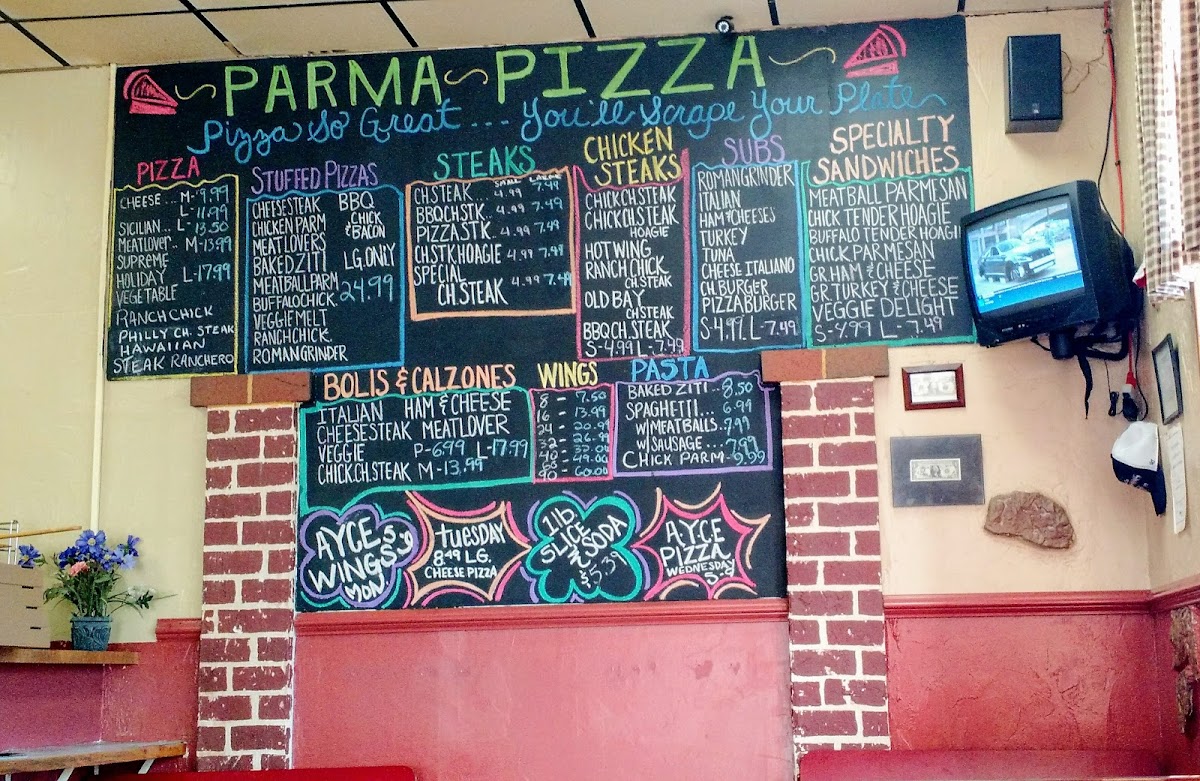 PARMA PIZZA
Pizza So Great... You'll Scrape Your Plate
PIZZA
CHEESE... M-9.99
L-11.99
SICILIAN.. L-13.50
MEATLOVER.. M-13.99
SUPREME
HOLIDAY L-17.99
VEGETABLE
RANCH CHICK
PHILLY CH. STEAK
HAWAIIAN
STEAK RANCHERO
STUFFED PIZZAS
CHEESESTEAK
CHICKEN PARM
MEAT LOVERS
BAKED ZITI
MEATBALL PARM
BUFFALO CHICK.
VEGGIE MELT
RANCH CHICK.
ROMAN GRINDER
BBQ
CHICK
& BACON
LG. ONLY
24.99
STEAKS
SMALL LARGE
CH. STEAK 4.99 7.49
BBQ CH. STK.. 4.99 7.49
PIZZA STK.. 4.99 7.49
CH. STK. HOAGIE 4.99 7.49
SPECIAL 4.99 7.49
CH. STEAK
CHICKEN
STEAKS
CHICK CH. STEAK
CHICK CH. STEAK
HOAGIE
HOT WING
RANCH CHICK.
CH. STEAK
OLD BAY
CH STEAK
BBQ CH. STEAK
S-4.99 L-7.99
SUBS
ROMAN GRINDER
ITALIAN
HAM & CHEESES
TURKEY
TUNA
CHEESE ITALIANO
CH. BURGER
PIZZA BURGER
S-4.99 L-7.49
SPECIALTY
SANDWICHES
MEATBALL PARMESAN
CHICK TENDER HOAGIE
BUFFALO TENDER HOAGI
CHICK. PARMESAN
GR. HAM & CHEESE
GR. TURKEY & CHEESE
VEGGIE DELIGHT
S-4.99 L-7.49
BOLIS & CALZONES
ITALIAN HAM & CHEESE
CHEESESTEAK MEATLOVER
VEGGIE P-6.99 L-17.99
CHICK. CH. STEAK M-13.99
WINGS
8 - 7.50
16 - 13.99
24 - 20.99
32 - 26.99
PASTA
BAKED ZITI.. 8.50
SPAGHETTI... 6.99
W/ MEATBALLS.. 7.99
W/ SAUSAGE... 7.99
CHICK PARM - 9.99
AYCE
WINGS
MON
TUESDAY
8.49 LG.
CHEESE PIZZA
1lb
SLICE
N SODA
$5.39
A.Y.C.E
PIZZA
WEDNESDAY
5-8